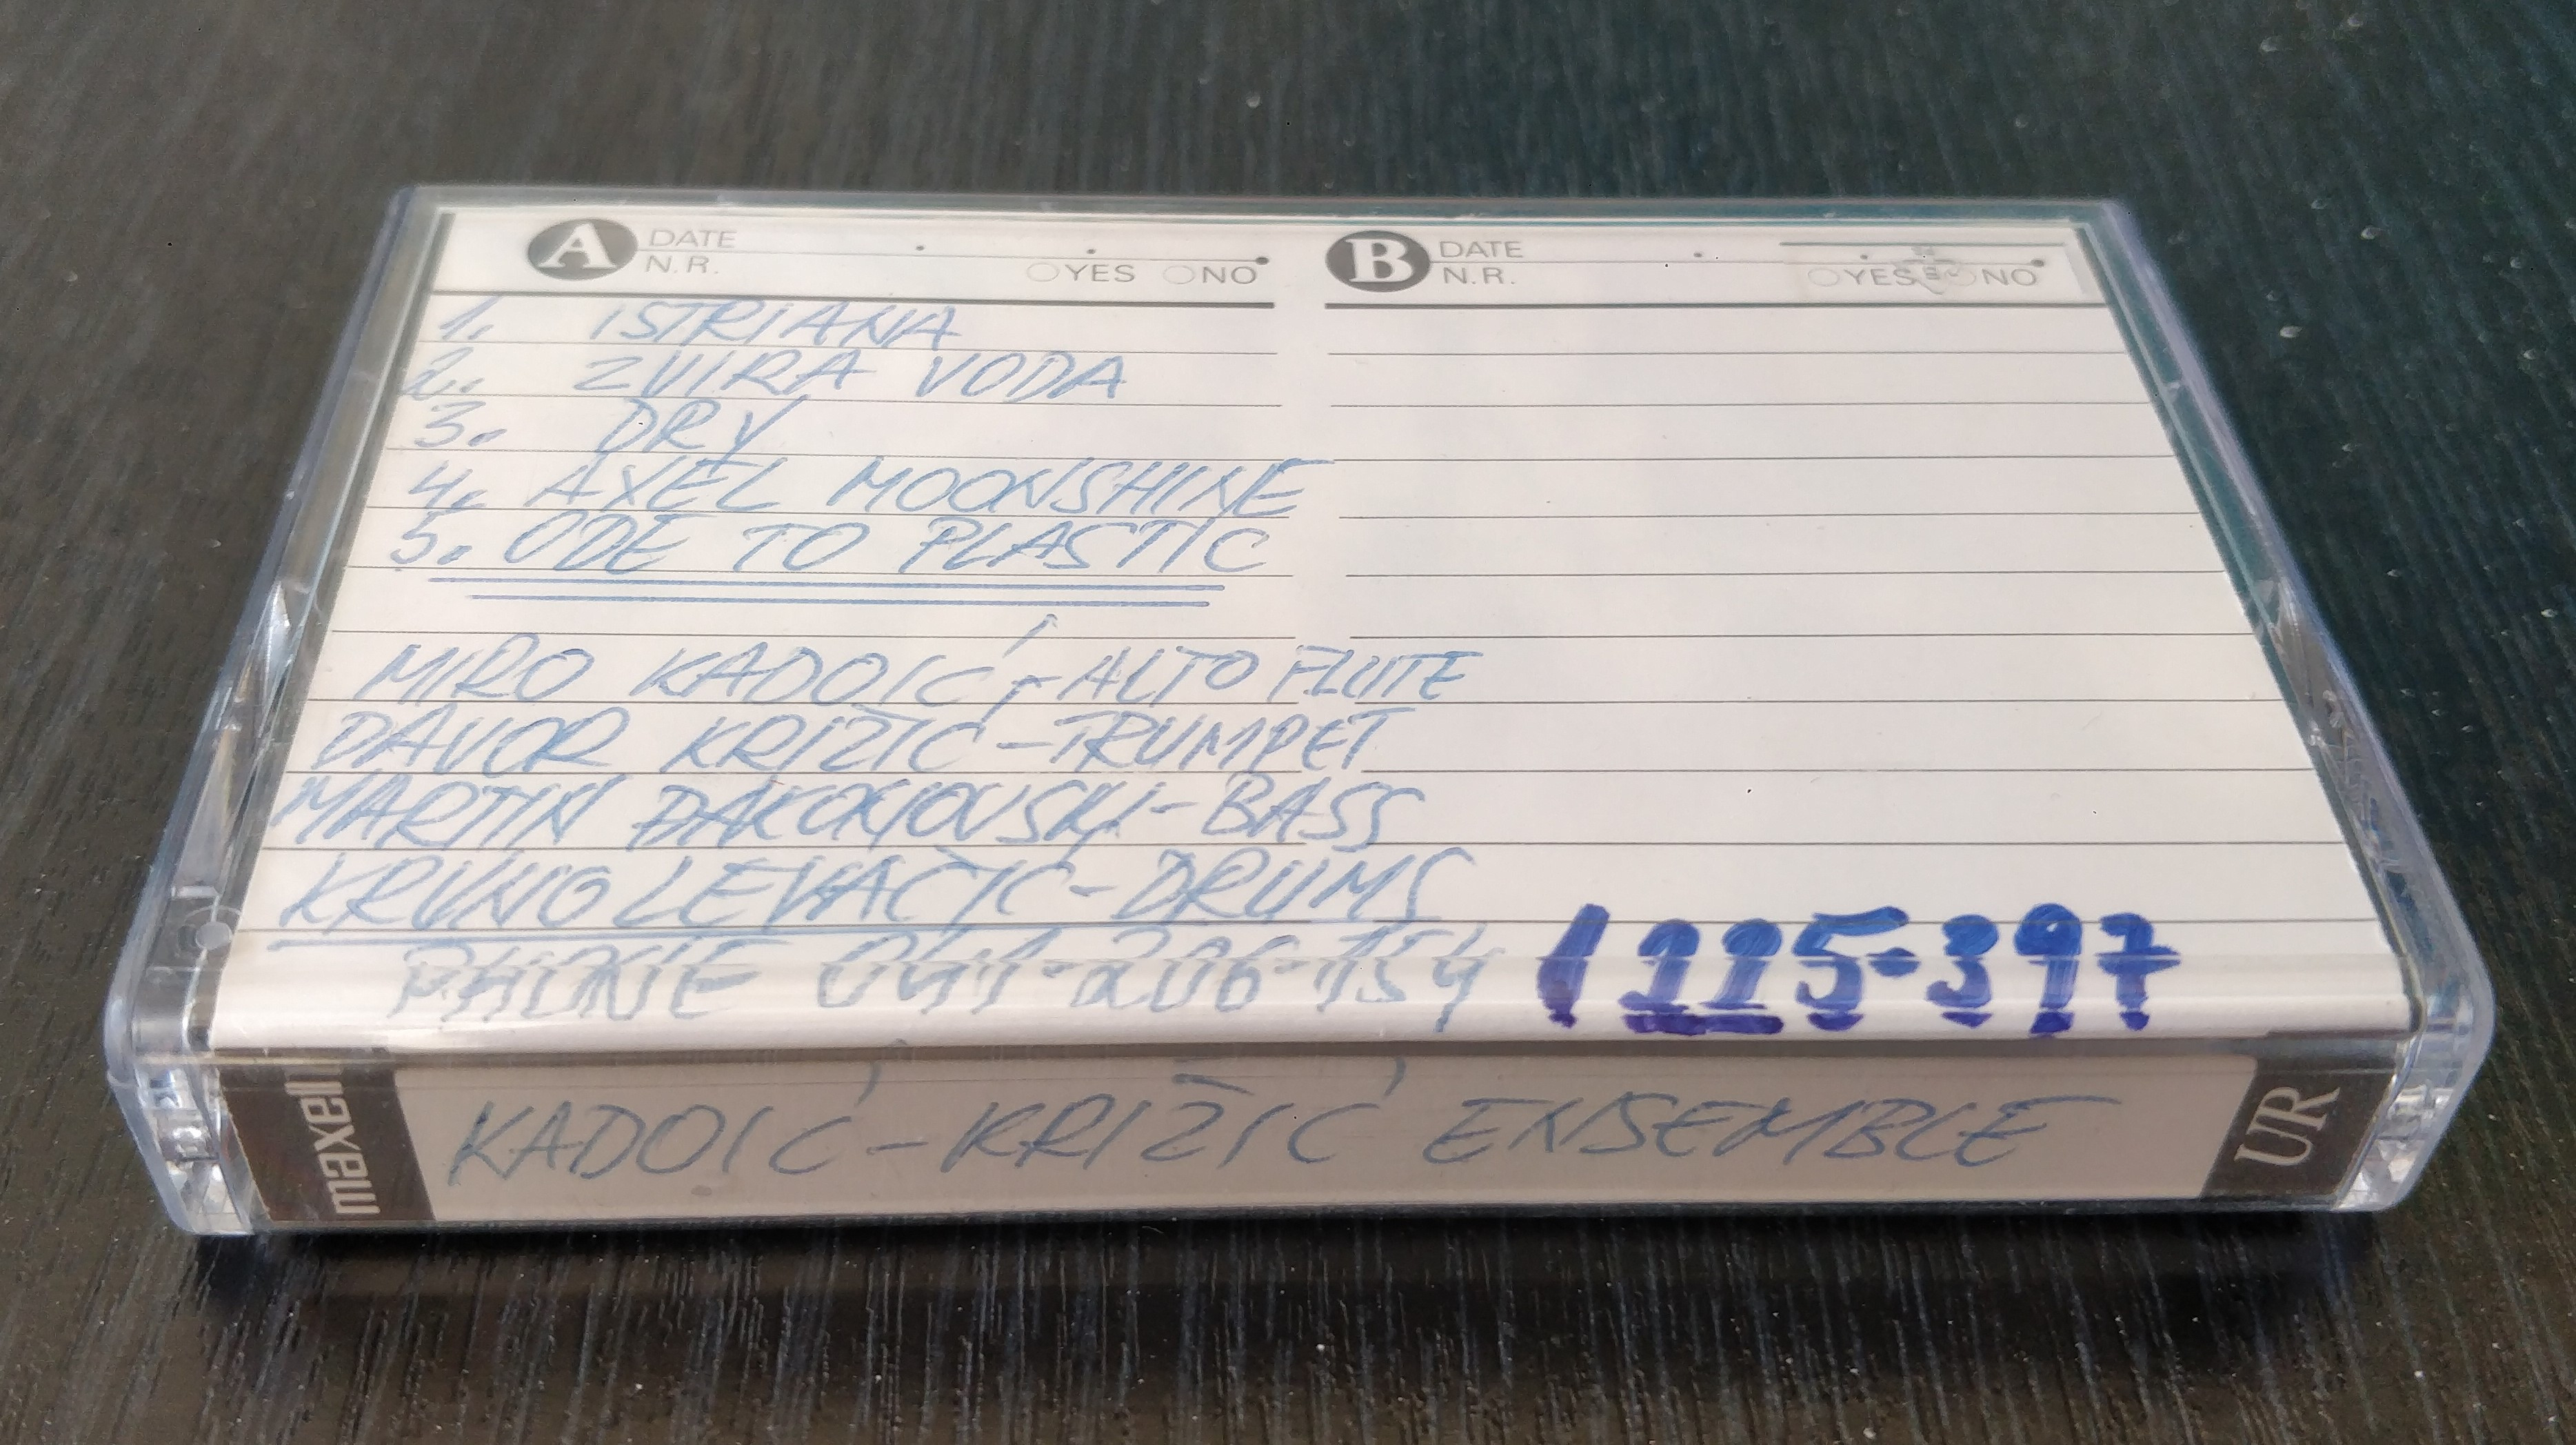 A DATE
N.R. YES NO
B DATE
N.R. YES NO
1. ISTRIANA
2. ZVIRA VODA
3. DRY
4. AXEL MOONSHINE
5. ODE TO PLASTIC
MIRO KADOIĆ - ALTO FLUTE
DAVOR KRIŽIĆ - TRUMPET
MARTIN ĐAKONOVSKI - BASS
KRUNO LEVAČIĆ - DRUMS
PHONE 041-206-154 / 225-397
maxell KADOIĆ - KRIŽIĆ ENSEMBLE UR